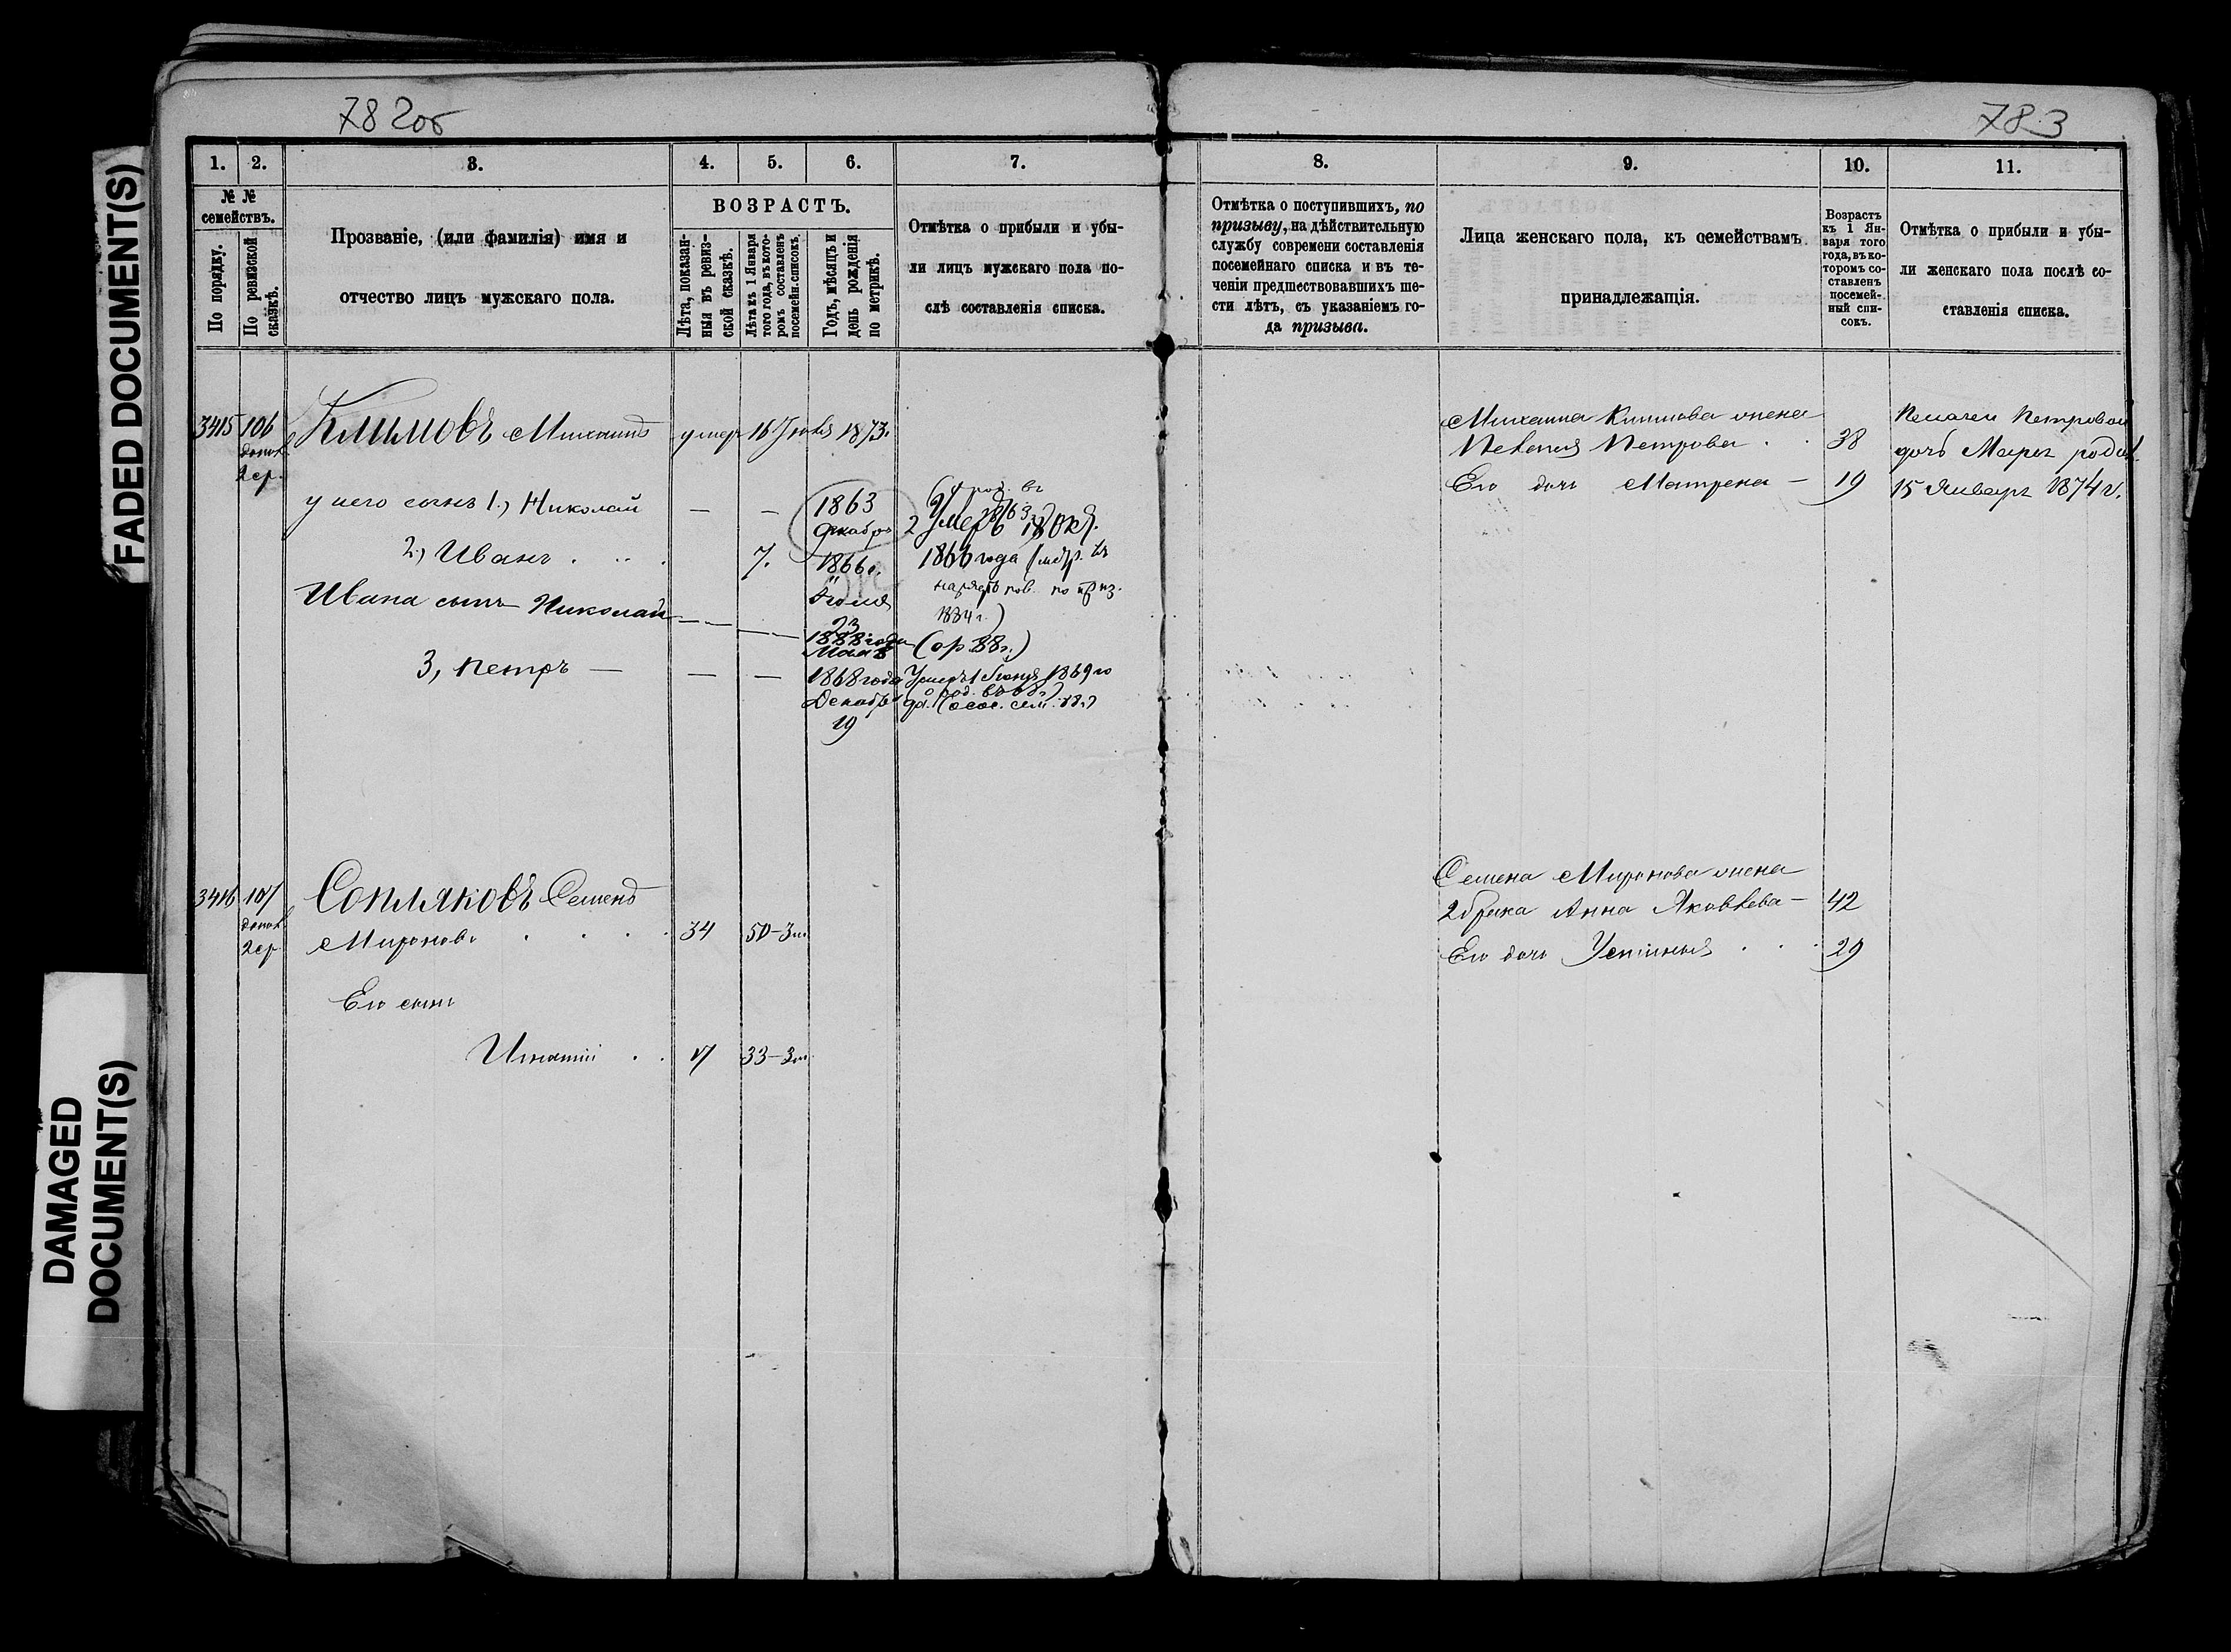 78 2об
783
FADED DOCUMENT(S)
DAMAGED
DOCUMENT(S)
1. 2. 3. 4. 5. 6. 7.
№ №
семействъ.
По порядку.
По ревизской
сказкѣ.
Прозваніе, (или фамилія) имя и
отчество лицъ мужскаго пола.
ВОЗРАСТЪ.
Лѣта, показан-
ныя въ ревиз-
ской сказкѣ.
Лѣта къ 1 Января
того года, въ кото-
ромъ составленъ
посемейн. списокъ.
Годъ, мѣсяцъ и
день рожденія
по метрикѣ.
Отмѣтка о прибыли и убы-
ли лицъ мужскаго пола по-
слѣ составленія списка.
3415 106 Климовъ Михаилъ умер 16 1873.
допол.
2 ср.
у него сынъ 1.) Николай — — 1863
Декабрь 2
Умеръ 18 Окт.
2.) Иванъ . . . 7. 1866 г. 1866 года
Іюля
23
1884 г.)
Ивана сынъ Николай — — 1888 года (ор. 88 г.)
Мая 8
3, Петръ — — — 1868 года Умеръ 1 1869 го
Декабрь да.
19
3416 107 Сопляковъ Семенъ
допол.
2 ср. Мироновъ . . . . 34 50-3м.
Его сынъ
Игнатій . . 17 33-3м.
8. 9. 10. 11.
Отмѣтка о поступившихъ, по
призыву, на дѣйствительную
службу современи составленія
посемейнаго списка и въ те-
ченіи предшествовавшихъ ше-
сти лѣтъ, съ указаніемъ го-
да призыва.
Лица женскаго пола, къ семействамъ
принадлежащія.
Возрастъ
къ 1 Ян-
варя того
года, въ ко-
торомъ со-
ставленъ
посемей-
ный спи-
сокъ.
Отмѣтка о прибыли и убы-
ли женскаго пола послѣ со-
ставленія списка.
Михаила Климова жена
Петрова . . 38
Его дочь Матрена — 19
Пелагеи Петровой
дочь родил.
15 Января 1874 г.
Семена Миронова жена
2 брака Анна Яковлева — 42
Его дочь Устинья . . . 29